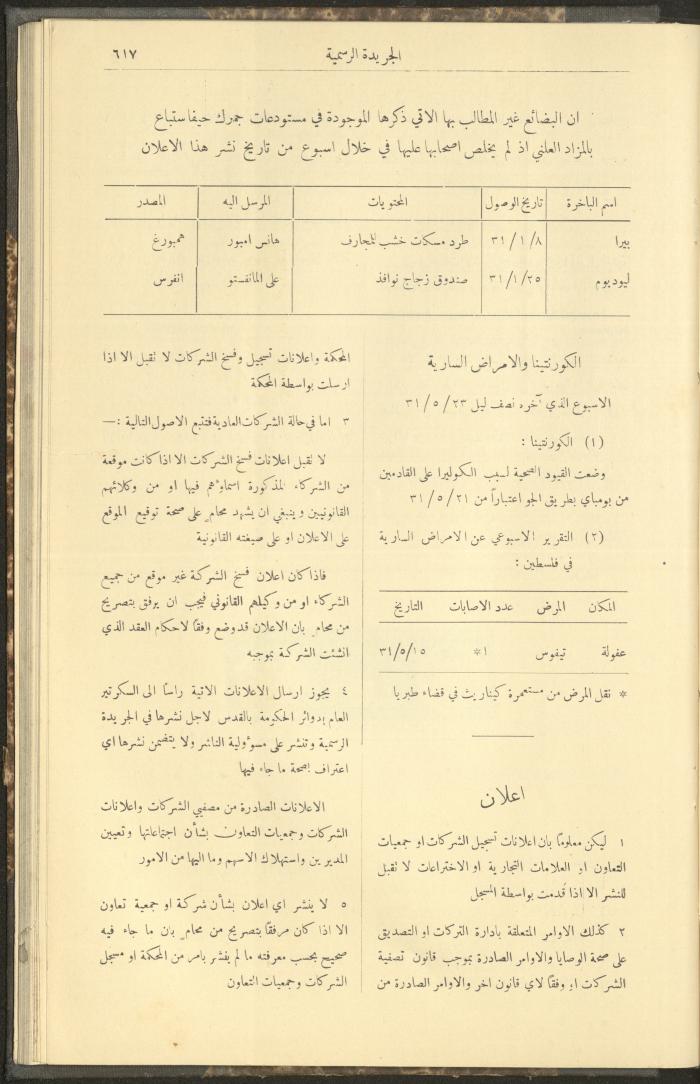 الجريدة الرسمية ٦١٧
ان البضائع غير المطالب بها الاتي ذكرها الموجودة في مستودعات جمرك حيفا ستباع
بالمزاد العلني اذ لم يخلص اصحابها عليها في خلال اسبوع من تاريخ نشر هذا الاعلان
اسم الباخرة تاريخ الوصول المحتويات المرسل اليه المصدر
بيرا ٣١/١/٨ طرد مسكات خشب للمجارف هانس امبور همبورغ
ليوديوم ٣١/١/٢٥ صندوق زجاج نوافذ على المانفستو انفرس
الكورنتينا والامراض السارية
الاسبوع الذي آخره نصف ليل ٣١/٥/٢٣
(١) الكورنتينا :
وضعت القيود الصحية لسبب الكوليرا على القادمين
من بومباي بطريق الجو اعتباراً من ٣١/٥/٢١
(٢) التقرير الاسبوعي عن الامراض السارية
في فلسطين :
المكان المرض عدد الاصابات التاريخ
عفولة تيفوس ١* ٣١/٥/١٥
* نقل المرض من مستعمرة كيناريث في قضاء طبريا
اعلان
١ ليكن معلوماً بان اعلانات تسجيل الشركات او جمعيات
التعاون او العلامات التجارية او الاختراعات لا تقبل
للنشر الا اذا قُدمت بواسطة المسجل
٢ كذلك الاوامر المتعلقة بادارة التركات او التصديق
على صحة الوصايا والاوامر الصادرة بموجب قانون تصفية
الشركات او وفقاً لاي قانون اخر والاوامر الصادرة من
المحكمة واعلانات تسجيل وفسخ الشركات لا تقبل الا اذا
ارسلت بواسطة المحكمة
٣ اما في حالة الشركات العادية فتتبع الاصول التالية :—
لا تقبل اعلانات فسخ الشركات الا اذا كانت موقعة
من الشركاء المذكورة اسماؤهم فيها او من وكلائهم
القانونيين وينبغي ان يشهد محامٍ على صحة توقيع الموقع
على الاعلان او على صيغته القانونية
فاذا كان اعلان فسخ الشركة غير موقع من جميع
الشركاء او من وكيلهم القانوني فيجب ان يرفق بتصريح
من محامٍ بان الاعلان قد وضع وفقاً لاحكام العقد الذي
انشئت الشركة بموجبه
٤ يجوز ارسال الاعلانات الاتية راساً الى السكرتير
العام بدوائر الحكومة بالقدس لاجل نشرها في الجريدة
الرسمية وتنشر على مسؤولية الناشر ولا يتضمن نشرها اي
اعتراف بصحة ما جاء فيها
الاعلانات الصادرة من مصفيي الشركات واعلانات
الشركات وجمعيات التعاون بشأن اجتماعاتها وتعيين
المديرين واستهلاك الاسهم وما اليها من الامور
٥ لا ينشر اي اعلان بشأن شركة او جمعية تعاون
الا اذا كان مرفقاً بتصريح من محامٍ بان ما جاء فيه
صحيح بحسب معرفته ما لم ينشر بامر من المحكمة او مسجل
الشركات وجمعيات التعاون